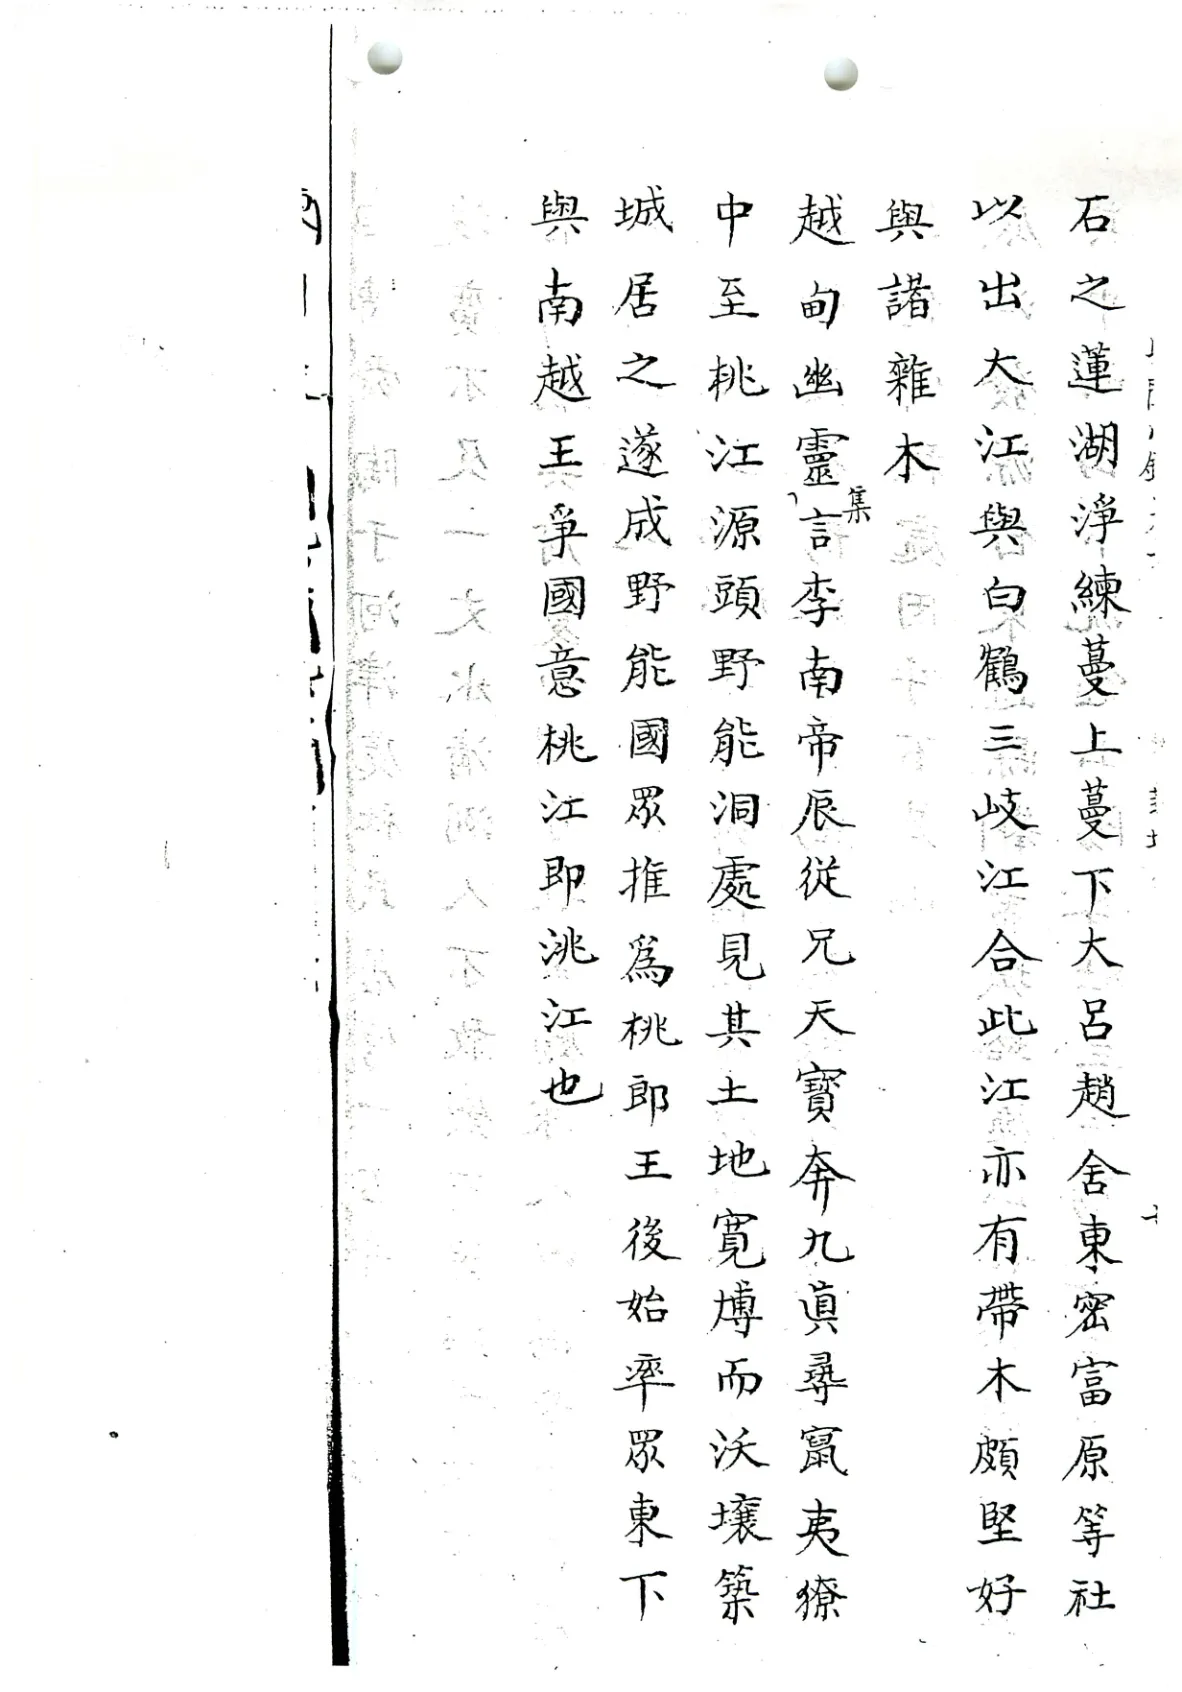 石之蓮湖淨練蔓上蔓下大呂趙舍東密富原等社
以出大江與白鶴三岐江合此江亦有帶木頗堅好
與諸雜木
越甸幽靈集言李南帝辰從兄天寶奔九眞尋竄夷獠
中至桃江源頭野能洞處見其土地寛博而沃壤築
城居之遂成野能國眾推爲桃郎王後始率眾東下
與南越王爭國意桃江即洮江也